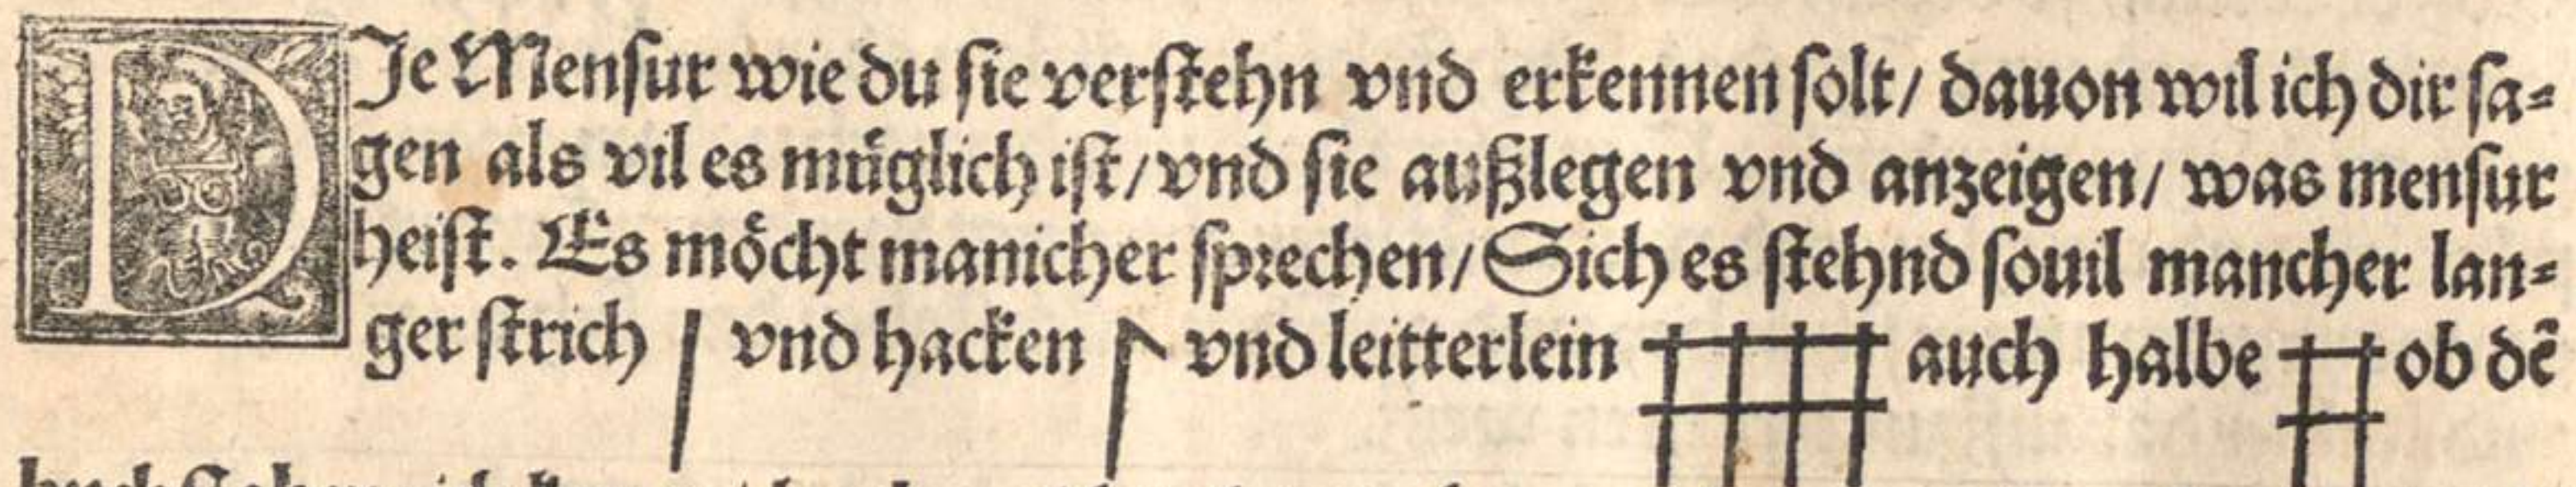 DJe Menſur wie du ſie verſtehn vnd erkennen ſolt/ dauon wil ich dir ſa⸗
gen als vil es müglich iſt/ vnd ſie außlegen vnd anzeigen/ was menſur
heiſt. Es möcht manicher ſprechen/ Sich es ſtehnd ſouil mancher lan⸗
ger ſtrich vnd hacken vnd leitterlein auch halbe ob dẽ